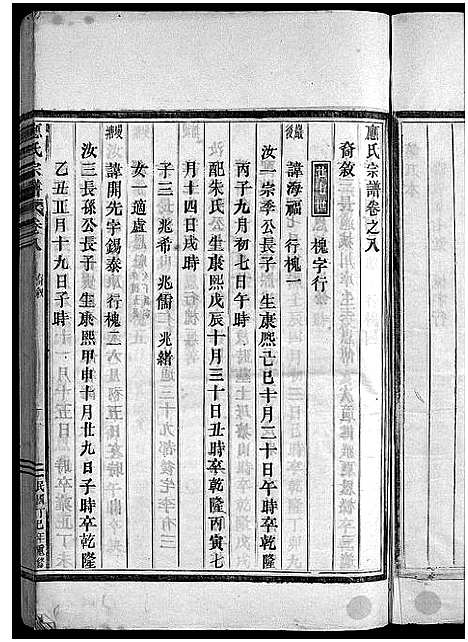 應氏宗譜卷之八
裔敘
槐字行
嚴後
諱海福 行槐一
汝一宗季公長子 生康熙己巳十月三十日午時卒乾隆
丙子九月初七日午時
配朱氏 公生康熙戊辰十月三十日丑時卒乾隆丙寅七
月十四日戌時
子三 兆希 兆儒 兆緒
女一適盧
諱開先字錫泰 行槐二
汝三長孫公長子 生康熙甲申十月廿九日子時卒乾隆
乙丑五月十九日子時
應氏宗譜 卷八 裔敘